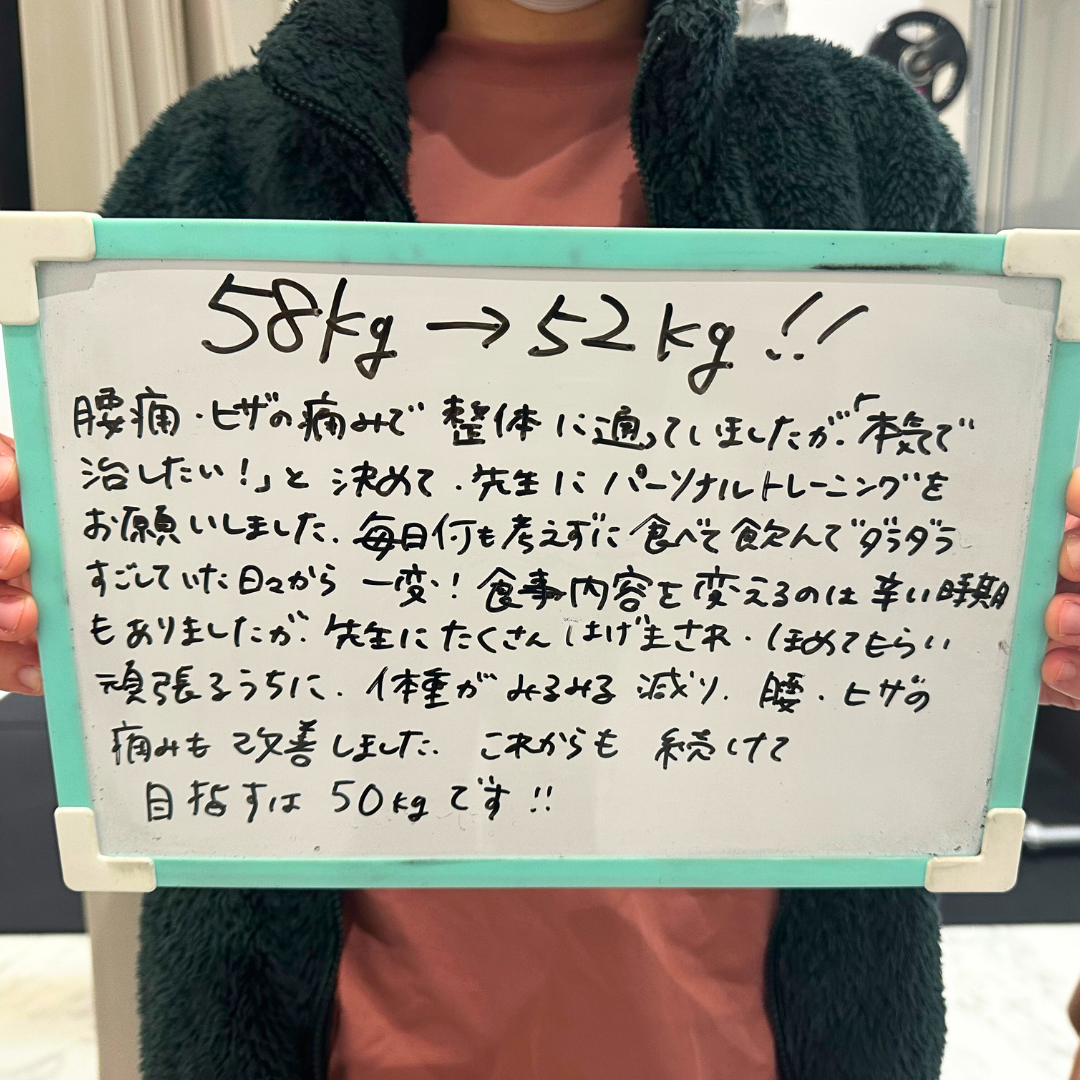 58kg→52kg!!
腰痛・ヒザの痛みで整体に通っていましたが、「本気で
治したい!」と決めて、先生にパーソナルトレーニングを
お願いしました。毎日何も考えずに食べて飲んでダラダラ
すごしていた日々から一変!食事内容を変えるのは辛い時期
もありましたが、先生にたくさんはげまされ、ほめてもらい
頑張るうちに、体重がみるみる減り、腰・ヒザの
痛みも改善しました。これからも続けて
目指すは50kgです!!